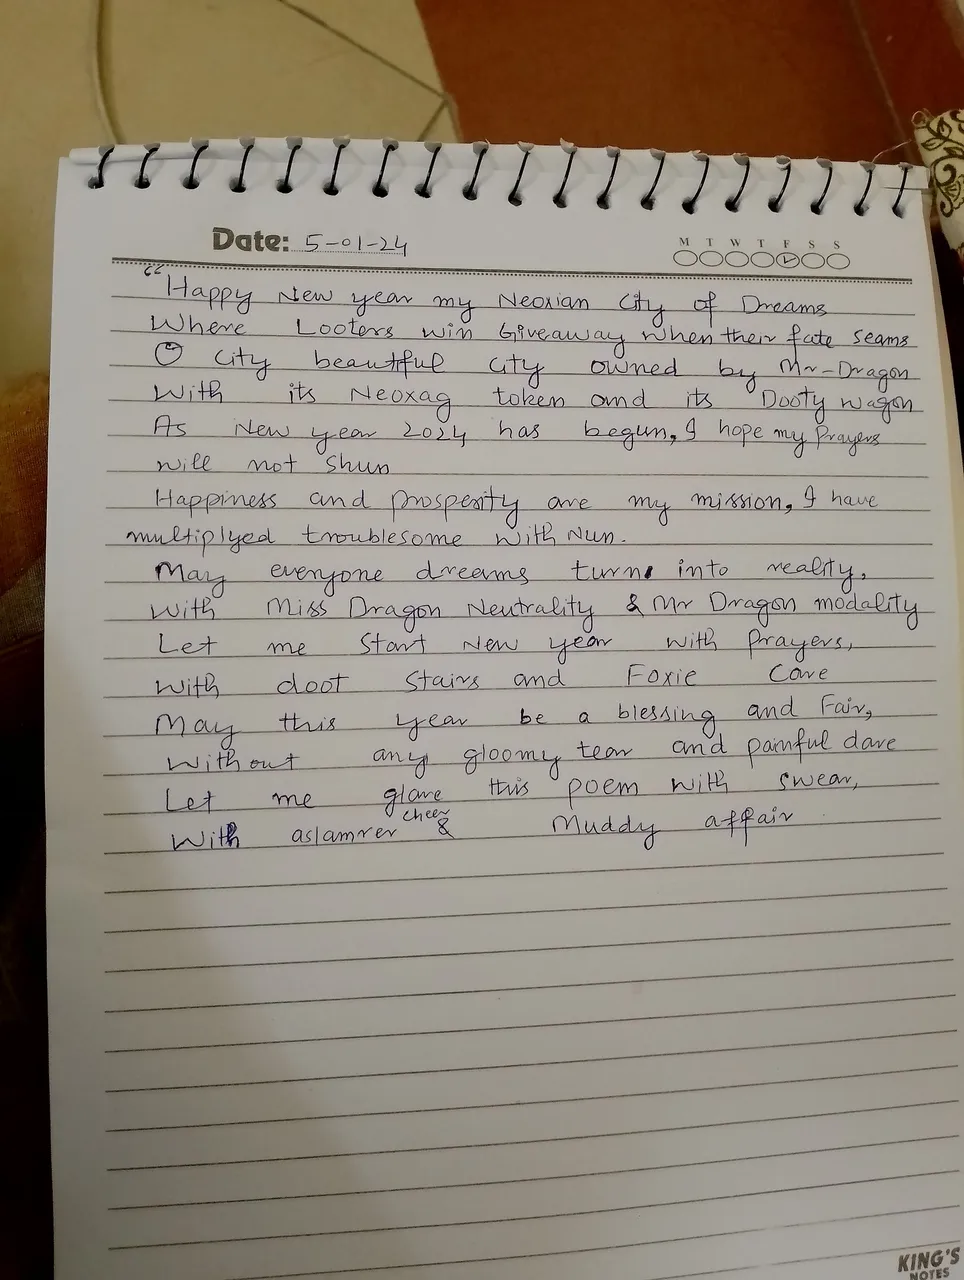 Date: 5-01-24
M T W T F S S
"Happy New year my Neoxian City of Dreams
Where Looters win Giveaway when their fate seams
O City beautful city owned by Mr-Dragon
With its Neoxag token and its Dooty wagon
As New year 2024 has begun, I hope my Prayers
will not shun
Happiness and prosperity are my mission, I have
multiplyed troublesome with Nun.
May everyone dreems turn into reality,
With Miss Dragon Neutrality & Mr Dragon modality
Let me Start New year with prayers,
With doot Stairs and Foxie Care
May this year be a blessing and Fair,
Without any gloomy tear and painful dare
Let me glare this poem with swear,
With aslamrer cheer & Muddy affair
KING'S
NOTES